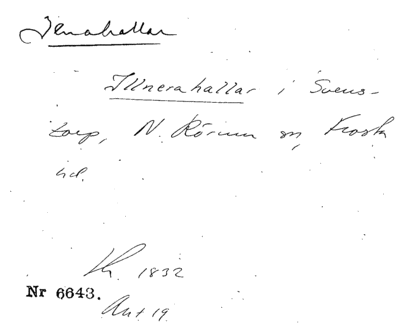 Jenahallar
Illnerahallar i Svens-
torp, N. Rörum sn, Frosta
hd.
1832
Nr 6643.
Ant 19.